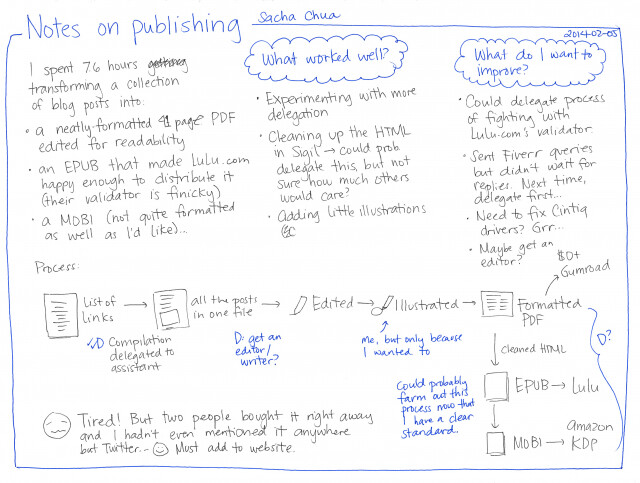 Notes on publishing
Sacha Chua
2014-02-05
I spent 76 hours
transforming a collection
of blog posts into:
• a neatly-formatted page PDF
edited for readability
• an EPUB that made Lulu.com
happy enough to distribute it
(their validator is finicky)
• a MOBI (not quite formatted
as well as I'd like)...
What worked well?
• Experimenting with more
delegation
• Cleaning up the HTML
in Sigil → could prob.
delegate this, but not
sure how much others
would care?
• Adding little illustrations
What do I want to
improve?
• Could delegate process
of fighting with
Lulu.com's validator.
• Sent Fiverr queries
but didn't wait for
replies. Next time,
delegate first...
• Need to fix Cintiq
drivers? Grr...
• Maybe get an
editor?
Process:
List of
Links
→ all the posts
in one file
→ Edited
→ Illustrated
→ Formatted
PDF
$0+
Gumroad
D Compilation
delegated to
assistant
D: get an
editor/
writer?
me, but only because
I wanted to
D?
cleaned HTML
EPUB → Lulu
MOBI → KDP
amazon
Could probably
farm out this
process now that
I have a clear
standard...
Tired! But two people bought it right away
and I hadn't even mentioned it anywhere
but Twitter... Must add to website.